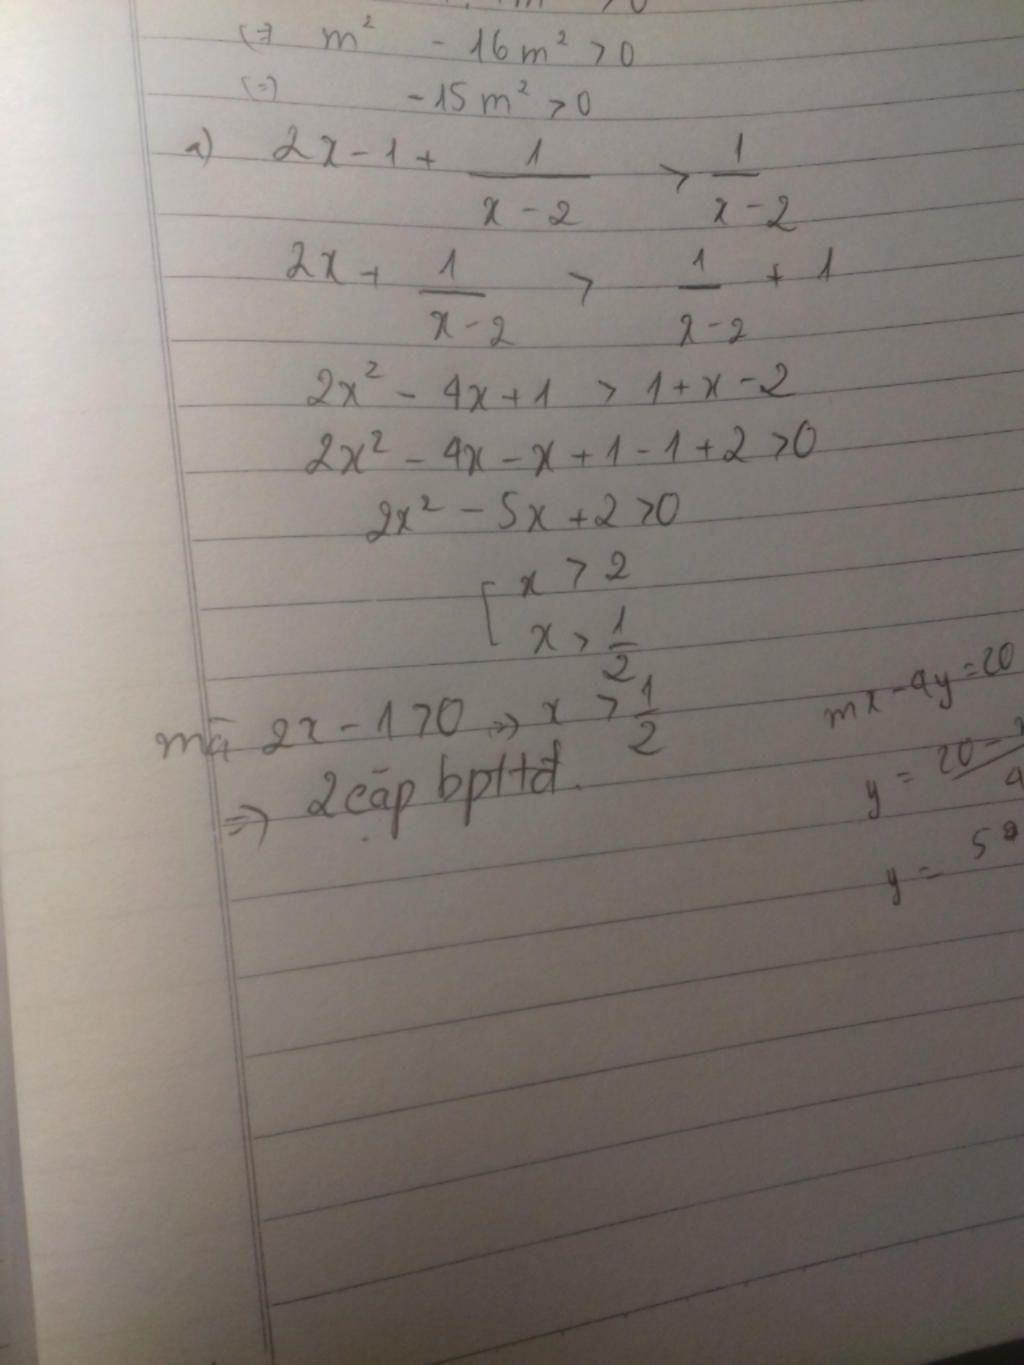 (=) m² - 16m² > 0
(=) -15m² > 0
a) 2x - 1 + 1/(x - 2) > 1/(x - 2)
2x + 1/(x - 2) > 1/(x - 2) + 1
2x² - 4x + 1 > 1 + x - 2
2x² - 4x - x + 1 - 1 + 2 > 0
2x² - 5x + 2 > 0
[ x > 2
x > 1/2
mà 2x - 1 > 0 => x > 1/2
=> 2 cặp bpttđ.
mx - 4y = 20
y = 20 -
y = 5